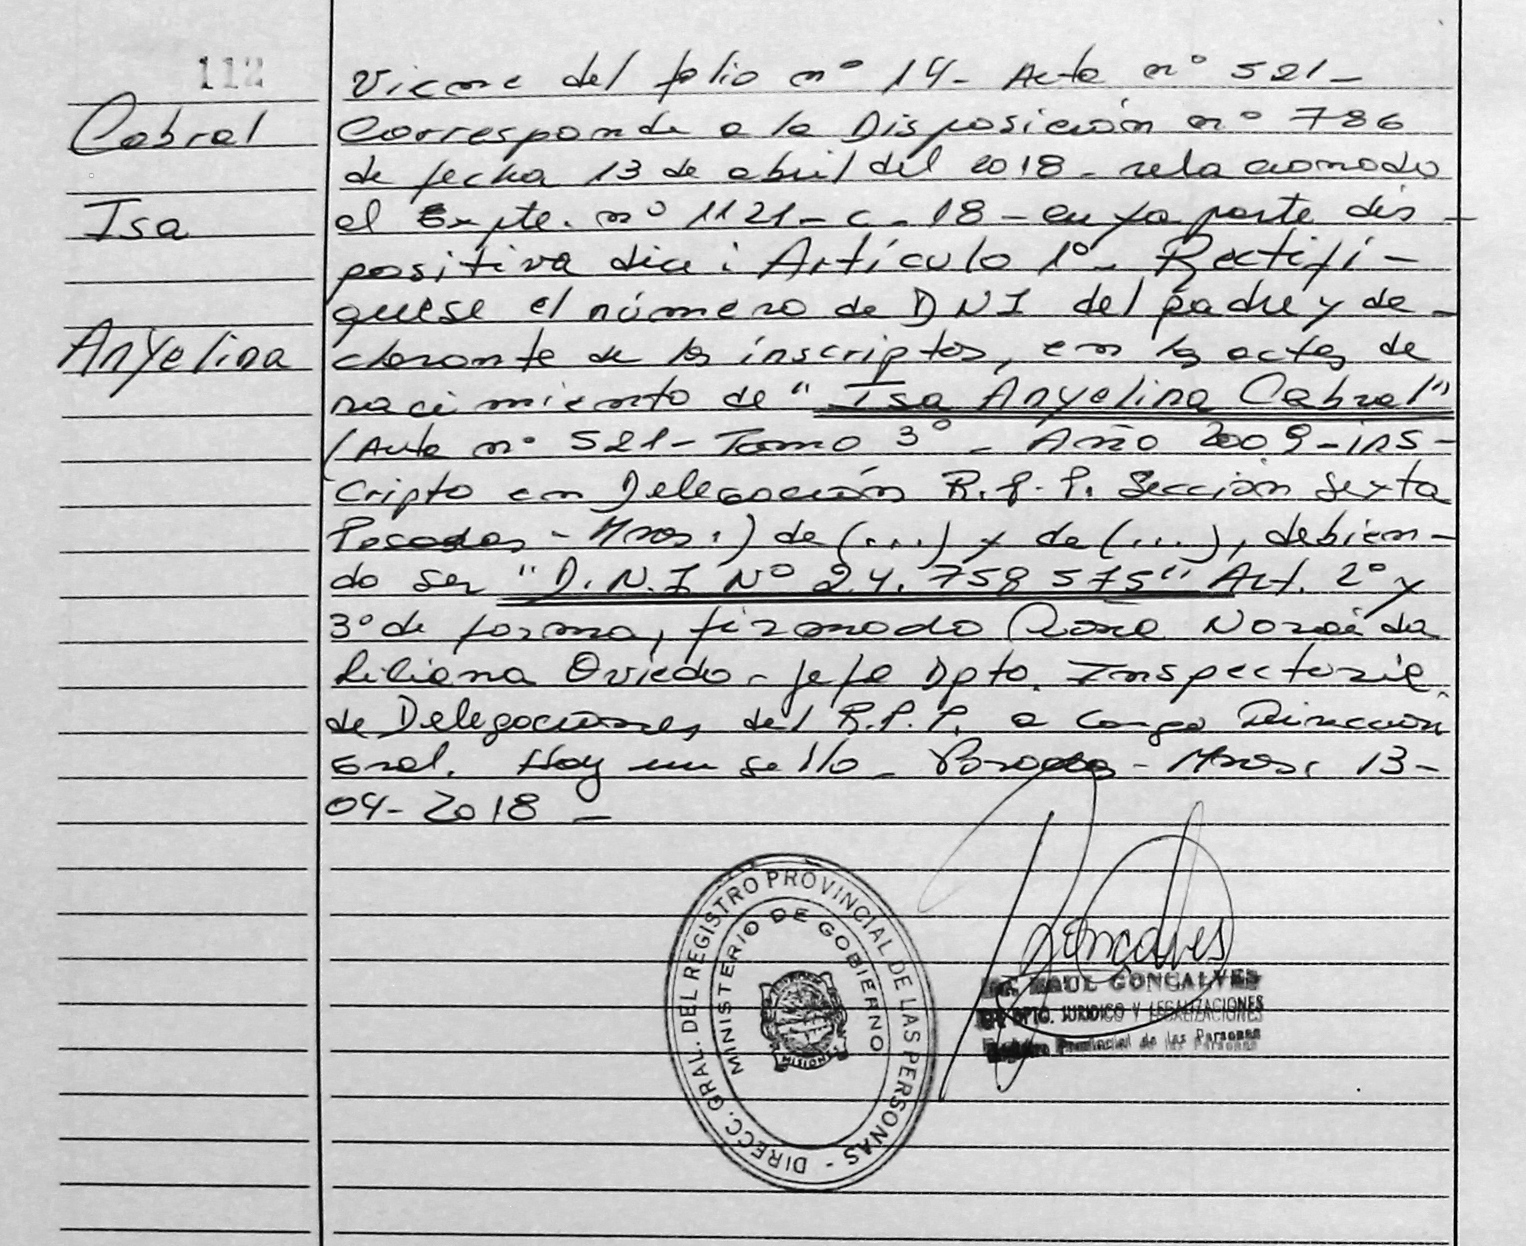 112
Cabral
Isa
Anyelina
Viene del folio nº 14- Acta nº 521-
Corresponde a la Disposición nº 786
de fecha 13 de abril del 2018- relacionado
el Expte. nº 1121-C-18- cuya parte dis-
positiva dice: Artículo 1º- Rectifí-
quese el número de DNI del padre y de-
clarante de los inscriptos, en las actas de
nacimiento de "Isa Anyelina Cabral"
(Acta nº 521- Tomo 3º- Año 2009- ins-
cripto en Delegación R.P.P. Sección Sexta
Posadas - Mnes.) de (...) y de (...), debien-
do ser "D.N.I Nº 24.758 575" Art. 2º y
3º de forma, firmado Rosa
Liliana Oviedo- Jefa Dpto. Inspectoría
de Delegaciones del R.P.P. a cargo Dirección
Gral. Hay un sello- Posadas - Mnes, 13-
04-2018 -
DIRECC. GRAL. DEL REGISTRO PROVINCIAL DE LAS PERSONAS -
MINISTERIO DE GOBIERNO
MISIONES
Goncalves
RAUL GONCALVES
DPTO. JURIDICO Y LEGALIZACIONES
Registro Provincial de las Personas